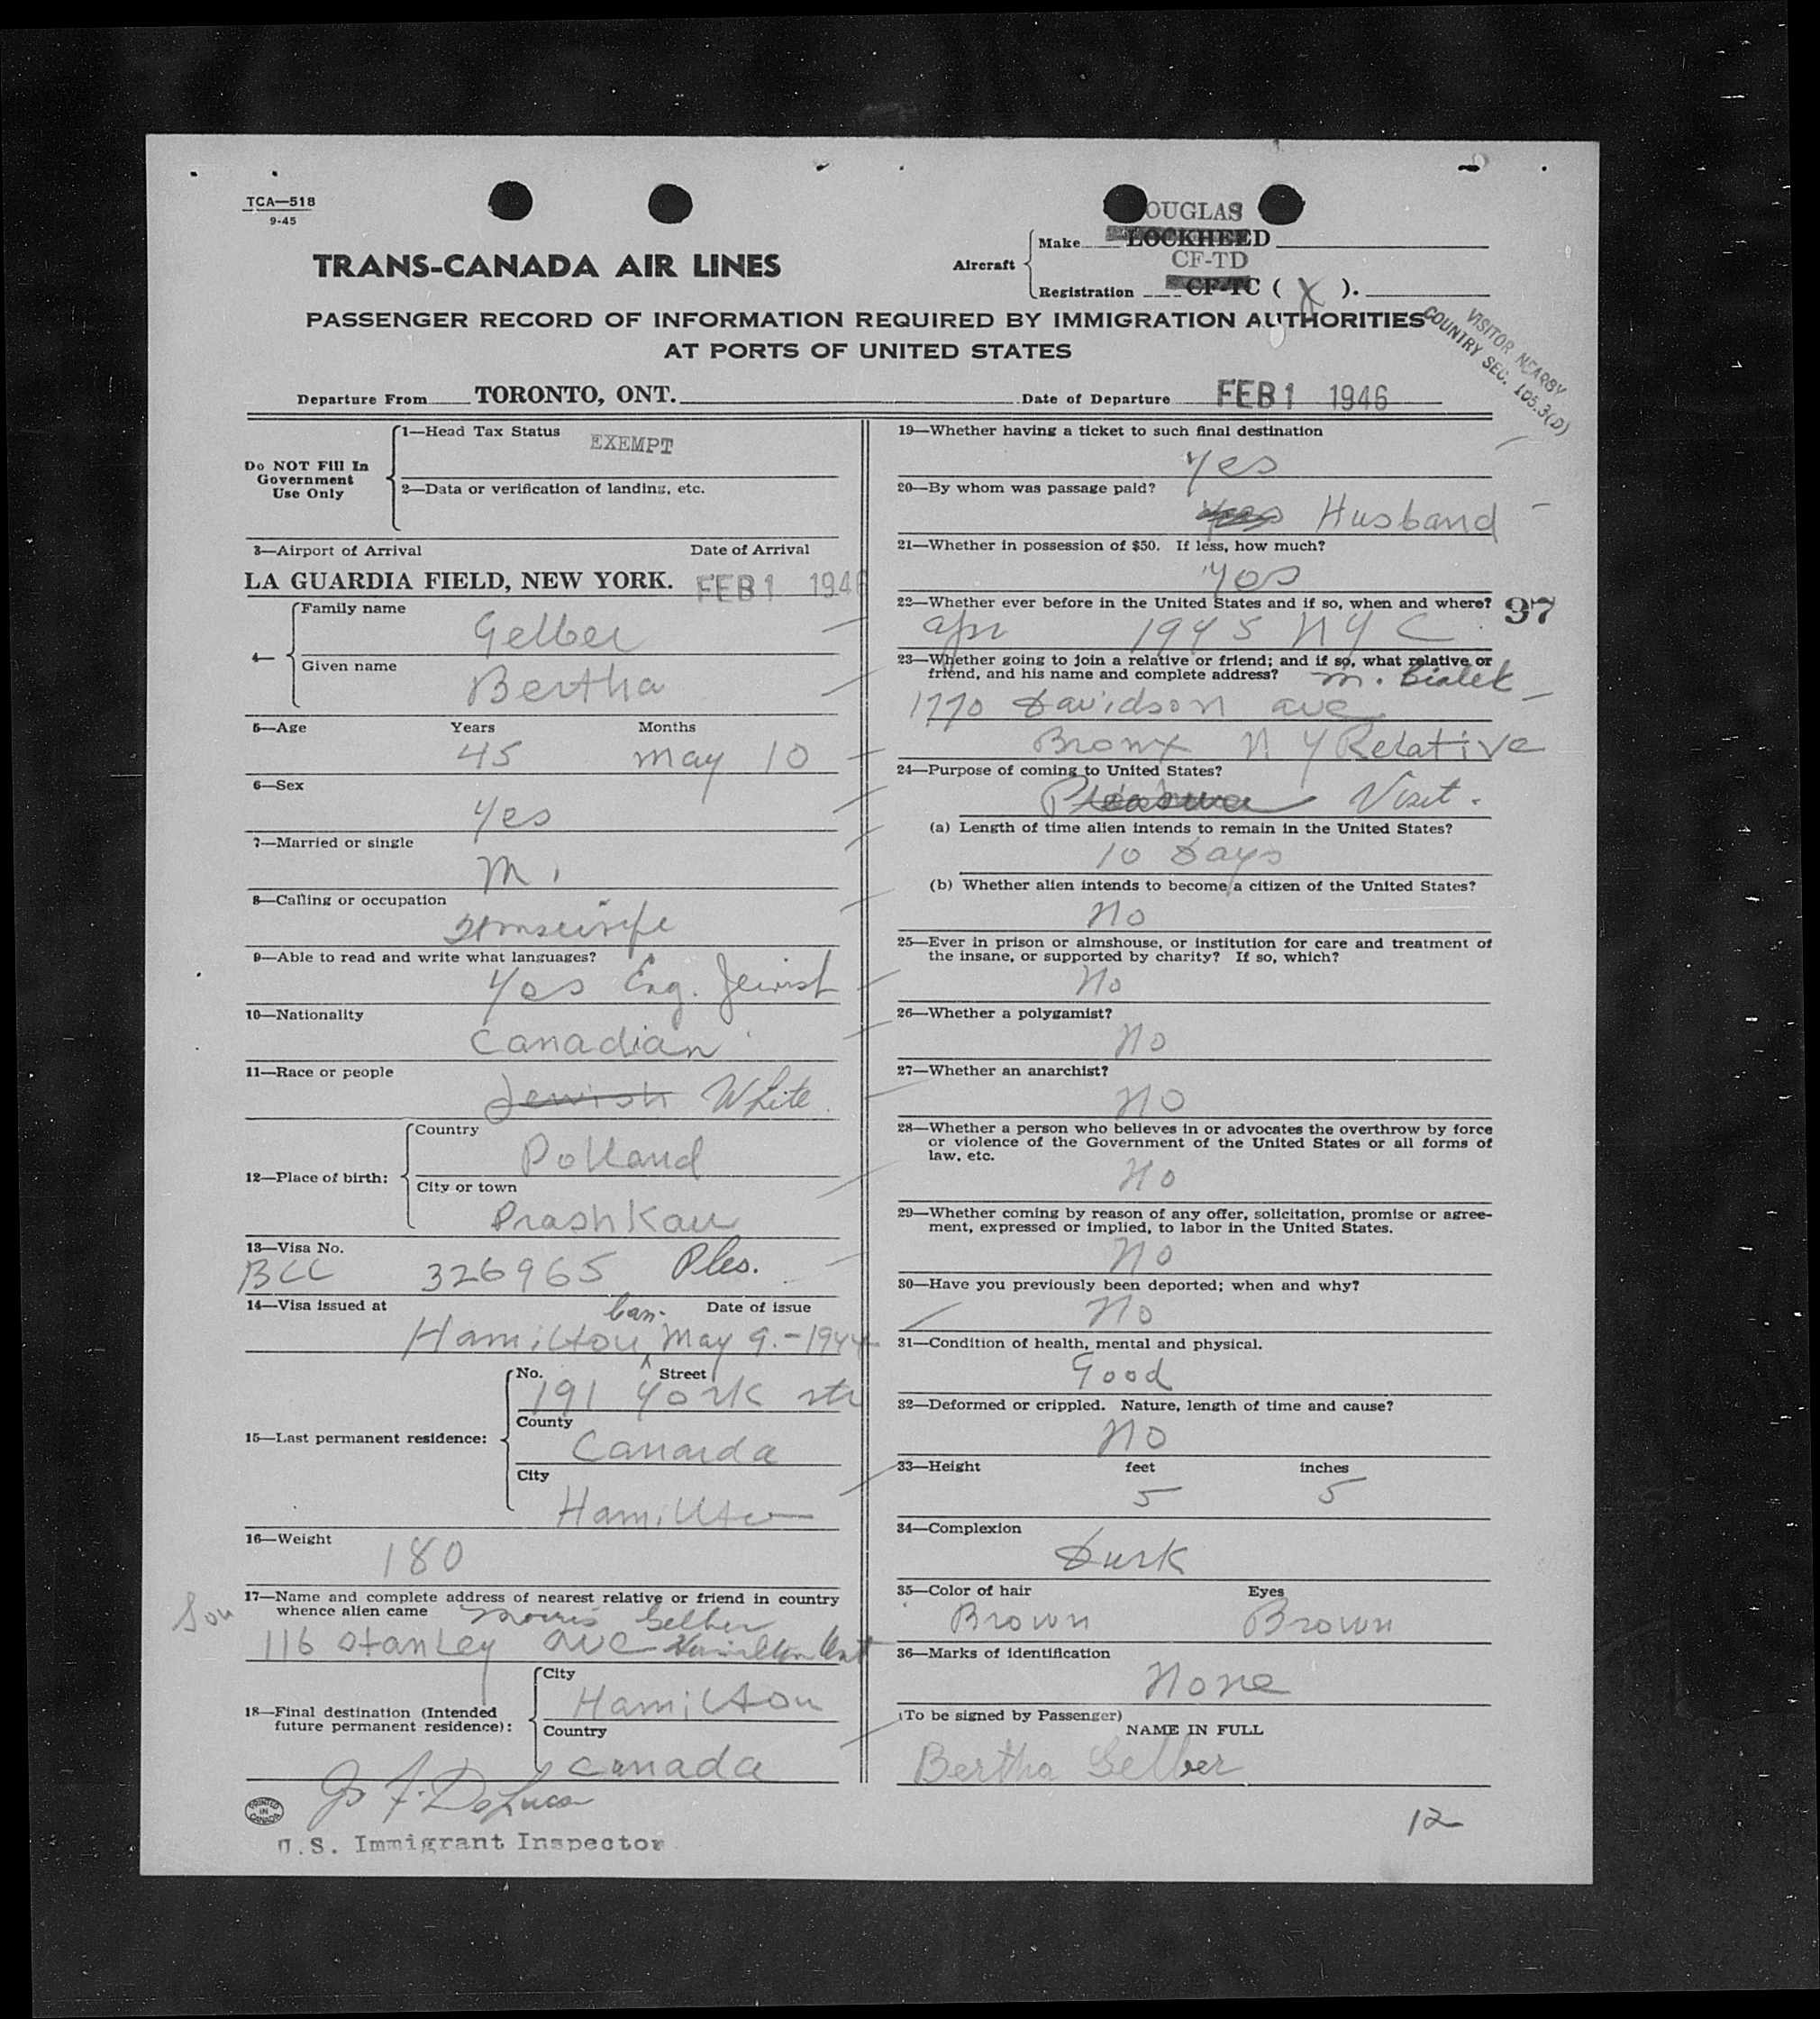 TCA—518
9-45
OUGLAS
Aircraft
Make LOCKHEED
CF-TD
Registration CF-TC ( X ).
TRANS-CANADA AIR LINES
PASSENGER RECORD OF INFORMATION REQUIRED BY IMMIGRATION AUTHORITIES
AT PORTS OF UNITED STATES
VISITOR NEARBY
COUNTRY SEC. 105.3(D)
Departure From TORONTO, ONT. Date of Departure FEB 1 1946
Do NOT Fill In
Government
Use Only
1—Head Tax Status EXEMPT
2—Data or verification of landing, etc.
3—Airport of Arrival Date of Arrival
LA GUARDIA FIELD, NEW YORK. FEB 1 1946
4—
Family name
Gelber
Given name
Bertha
5—Age Years Months
45 May 10
6—Sex
Yes
7—Married or single
M.
8—Calling or occupation
Housewife
9—Able to read and write what languages?
Yes Eng. Jewish
10—Nationality
Canadian
11—Race or people
Jewish White.
12—Place of birth:
Country
Polland
City or town
Prashkau
13—Visa No.
BCC 326965 Ples.
14—Visa issued at Can. Date of issue
Hamilton May 9.-1944
15—Last permanent residence:
No. Street
191 York str
County
Canada
City
Hamilton
16—Weight
180
17—Name and complete address of nearest relative or friend in country
whence alien came Morris Gelber
Son
116 Stanley ave Hamilton Ont
18—Final destination (Intended
future permanent residence):
City
Hamilton
Country
Canada
PRINTED
IN
CANADA
U.S. Immigrant Inspector
19—Whether having a ticket to such final destination
Yes
20—By whom was passage paid?
Yes Husband
21—Whether in possession of $50. If less, how much?
Yes
22—Whether ever before in the United States and if so, when and where?
97
apr 1945 N Y C
23—Whether going to join a relative or friend; and if so, what relative or
friend, and his name and complete address? M. Bialek
1770 Davidson ave
Bronx N Y Relative
24—Purpose of coming to United States?
Pleasure Visit.
(a) Length of time alien intends to remain in the United States?
10 Days
(b) Whether alien intends to become a citizen of the United States?
No
25—Ever in prison or almshouse, or institution for care and treatment of
the insane, or supported by charity? If so, which?
No
26—Whether a polygamist?
No
27—Whether an anarchist?
NO
28—Whether a person who believes in or advocates the overthrow by force
or violence of the Government of the United States or all forms of
law, etc.
No
29—Whether coming by reason of any offer, solicitation, promise or agree-
ment, expressed or implied, to labor in the United States.
No
30—Have you previously been deported; when and why?
No
31—Condition of health, mental and physical.
Good
32—Deformed or crippled. Nature, length of time and cause?
NO
33—Height feet inches
5 5
34—Complexion
Durk
35—Color of hair Eyes
Brown Brown
36—Marks of identification
None
(To be signed by Passenger)
NAME IN FULL
Bertha Gelber
12